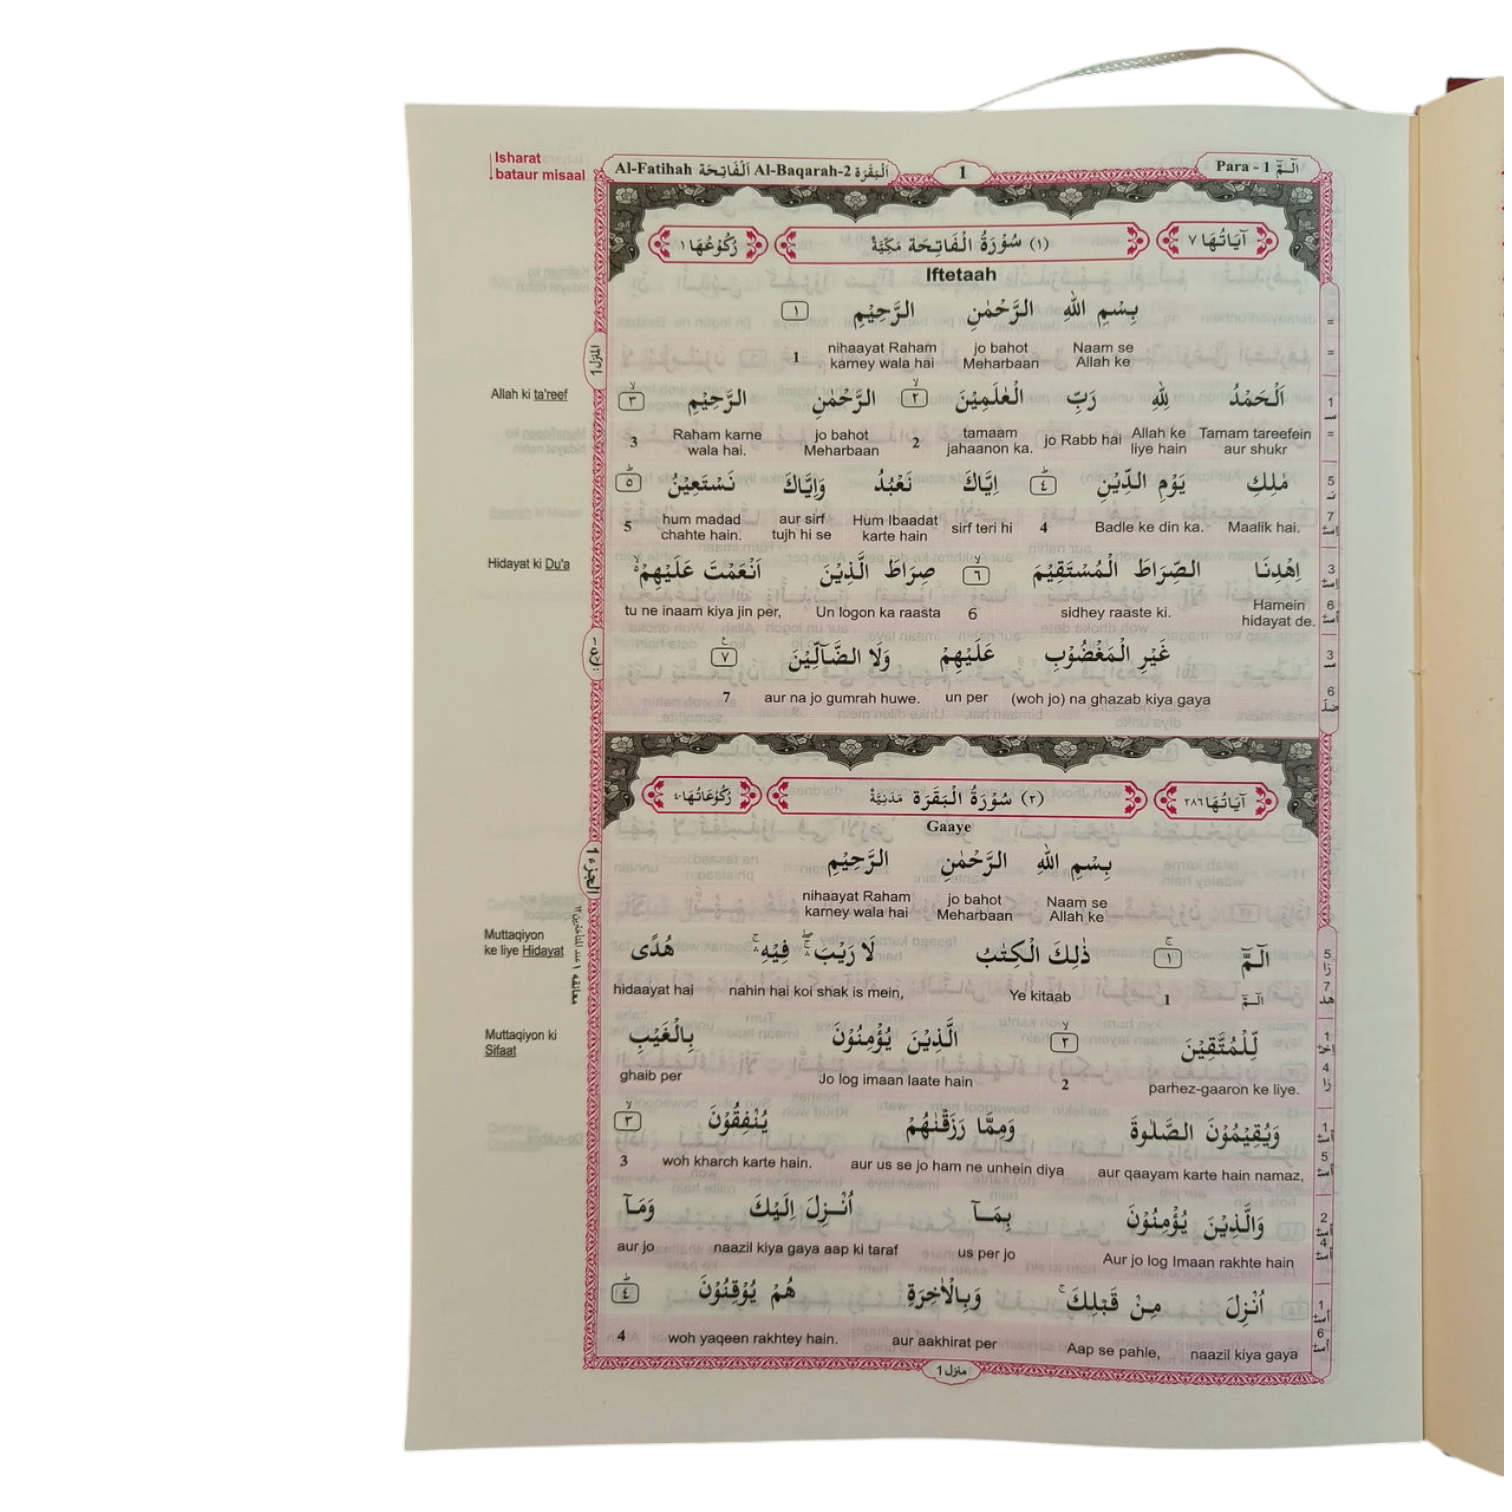 Isharat
bataur misaal
Al-Fatihah اَلْفَاتِحَة Al-Baqarah-2 اَلْبَقَرَة
1
Para - 1 الٓـمّٓ
اٰيَاتُهَا ٧ (١) سُوْرَةُ الْفَاتِحَة مَكِّيَّةٌ رُكُوْعُهَا ١
Iftetaah
بِسْمِ اللّٰهِ الرَّحْمٰنِ الرَّحِيْمِ ١
Naam se Allah ke jo bahot Meharbaan nihaayat Raham karney wala hai 1
Allah ki ta'reef
اَلْحَمْدُ لِلّٰهِ رَبِّ الْعٰلَمِيْنَ ٢ الرَّحْمٰنِ الرَّحِيْمِ ٣
Tamam tareefein aur shukr Allah ke liye hain jo Rabb hai tamaam jahaanon ka. 2 jo bahot Meharbaan Raham karne wala hai. 3
مٰلِكِ يَوْمِ الدِّيْنِ ٤ اِيَّاكَ نَعْبُدُ وَاِيَّاكَ نَسْتَعِيْنُ ٥
Maalik hai. Badle ke din ka. 4 sirf teri hi Hum Ibaadat karte hain aur sirf tujh hi se hum madad chahte hain. 5
Hidayat ki Du'a
اِهْدِنَا الصِّرَاطَ الْمُسْتَقِيْمَ ٦ صِرَاطَ الَّذِيْنَ اَنْعَمْتَ عَلَيْهِمْ
Hamein hidayat de. sidhey raaste ki. 6 Un logon ka raasta tu ne inaam kiya jin per,
غَيْرِ الْمَغْضُوْبِ عَلَيْهِمْ وَلَا الضَّآلِّيْنَ ٧
(woh jo) na ghazab kiya gaya un per aur na jo gumrah huwe. 7
اٰيَاتُهَا ٢٨٦ (٢) سُوْرَةُ الْبَقَرَة مَدَنِيَّةٌ رُكُوْعَاتُهَا ٤٠
Gaaye
بِسْمِ اللّٰهِ الرَّحْمٰنِ الرَّحِيْمِ
Naam se Allah ke jo bahot Meharbaan nihaayat Raham karney wala hai
Muttaqiyon
ke liye Hidayat
الٓـمّٓ ١ ذٰلِكَ الْكِتٰبُ لَا رَيْبَ فِيْهِ هُدًى
الٓـمّٓ 1 Ye kitaab nahin hai koi shak is mein, hidaayat hai
Muttaqiyon ki
Sifaat
لِّلْمُتَّقِيْنَ ٢ الَّذِيْنَ يُؤْمِنُوْنَ بِالْغَيْبِ
parhez-gaaron ke liye. 2 Jo log imaan laate hain ghaib per
وَيُقِيْمُوْنَ الصَّلٰوةَ وَمِمَّا رَزَقْنٰهُمْ يُنْفِقُوْنَ ٣
aur qaayam karte hain namaz, aur us se jo ham ne unhein diya woh kharch karte hain. 3
وَالَّذِيْنَ يُؤْمِنُوْنَ بِمَـآ اُنْـزِلَ اِلَيْكَ وَمَآ
Aur jo log Imaan rakhte hain us per jo naazil kiya gaya aap ki taraf aur jo
اُنْزِلَ مِنْ قَبْلِكَ وَبِالْاٰخِرَةِ هُمْ يُوْقِنُوْنَ ٤
naazil kiya gaya Aap se pahle, aur aakhirat per woh yaqeen rakhtey hain. 4
المنزل 1
الجزء 1
منزل 1